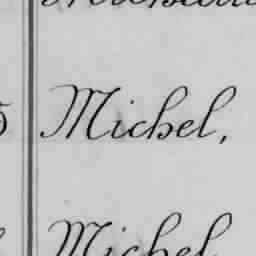 Michel,
Michel